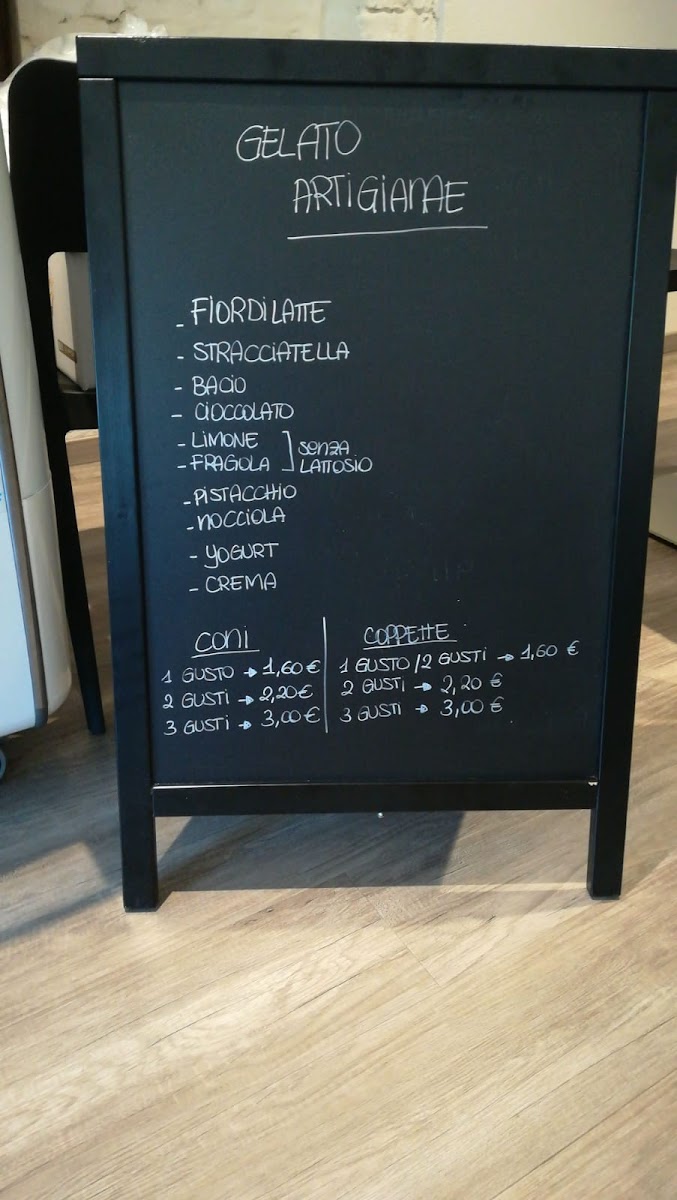 GELATO
ARTIGIANALE
- FIORDILATTE
- STRACCIATELLA
- BACIO
- CIOCCOLATO
- LIMONE
- FRAGOLA
senza
LATTOSIO
- PISTACCHIO
- NOCCIOLA
- YOGURT
- CREMA
CONI
1 GUSTO → 1,60 €
2 GUSTI → 2,20 €
3 GUSTI → 3,00 €
COPPETTE
1 GUSTO / 2 GUSTI → 1,60 €
2 GUSTI → 2,20 €
3 GUSTI → 3,00 €